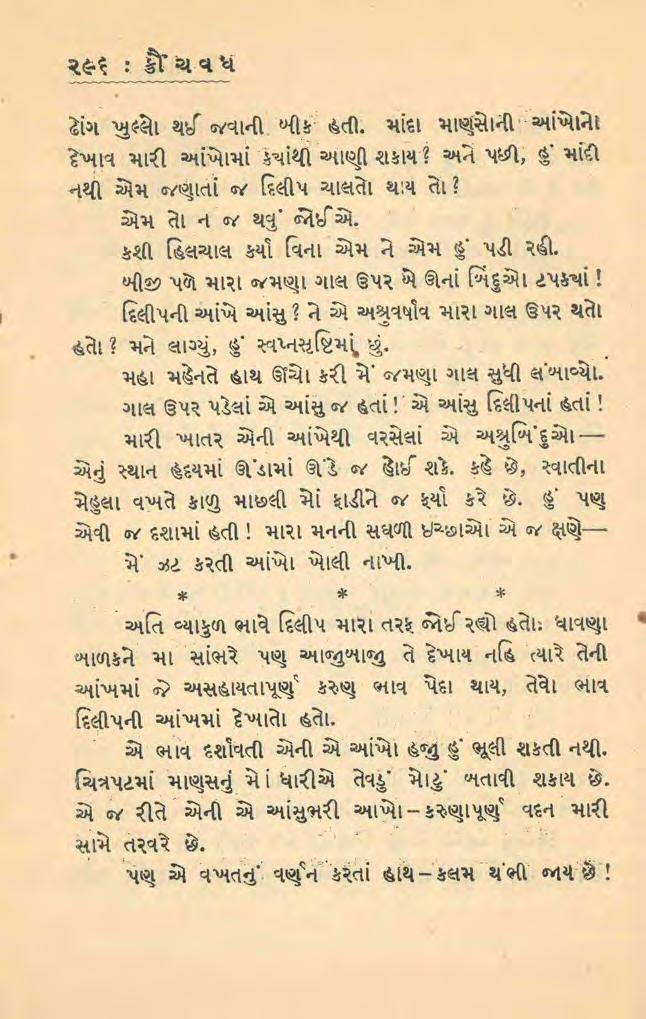 ૨૯૬ : ક્રૌંચવધ
ઢોંગ ખુલ્લો થઈ જવાની બીક હતી. માંદા માણસોની આંખોનો
દેખાવ મારી આંખોમાં ક્યાંથી આણી શકાય? અને પછી, હું માંદી
નથી એમ જણાતાં જ દિલીપ ચાલતો થાય તો?
એમ તો ન જ થવું જોઈએ.
કશી હિલચાલ કર્યા વિના એમ ને એમ હું પડી રહી.
બીજી પળે મારા જમણા ગાલ ઉપર બે ઊનાં બિંદુઓ ટપક્યાં!
દિલીપની આંખે આંસુ? ને એ અશ્રુવર્ષાવ મારા ગાલ ઉપર થતો
હતો? મને લાગ્યું, હું સ્વપ્નસૃષ્ટિમાં છું.
મહા મહેનતે હાથ ઊંચો કરી મેં જમણા ગાલ સુધી લંબાવ્યો.
ગાલ ઉપર પડેલાં એ આંસુ જ હતાં! એ આંસુ દિલીપનાં હતાં!
મારી ખાતર એની આંખેથી વરસેલાં એ અશ્રુબિંદુઓ—
એનું સ્થાન હૃદયમાં ઊંડામાં ઊંડે જ હોઈ શકે. કહે છે, સ્વાતીના
મેહુલા વખતે કાળુ માછલી મોં ફાડીને જ ફર્યા કરે છે. હું પણ
એવી જ દશામાં હતી! મારા મનની સઘળી ઇચ્છાઓ એ જ ક્ષણે—
મેં ઝટ કરતી આંખો ખોલી નાખી.
* * *
અતિ વ્યાકુળ ભાવે દિલીપ મારા તરફ જોઈ રહ્યો હતોઃ ધાવણા
બાળકને મા સાંભરે પણ આજુબાજુ તે દેખાય નહિ ત્યારે તેની
આંખમાં જે અસહાયતાપૂર્ણ કરુણ ભાવ પેદા થાય, તેવો ભાવ
દિલીપની આંખમાં દેખાતો હતો.
એ ભાવ દર્શાવતી એની એ આંખો હજુ હું ભૂલી શકતી નથી.
ચિત્રપટમાં માણસનું મોં ધારીએ તેવડું મોટું બતાવી શકાય છે.
એ જ રીતે એની એ આંસુભરી આખો–કરુણાપૂર્ણ વદન મારી
સામે તરવરે છે.
પણ એ વખતનું વર્ણન કરતાં હાથ–કલમ થંભી જાય છે!